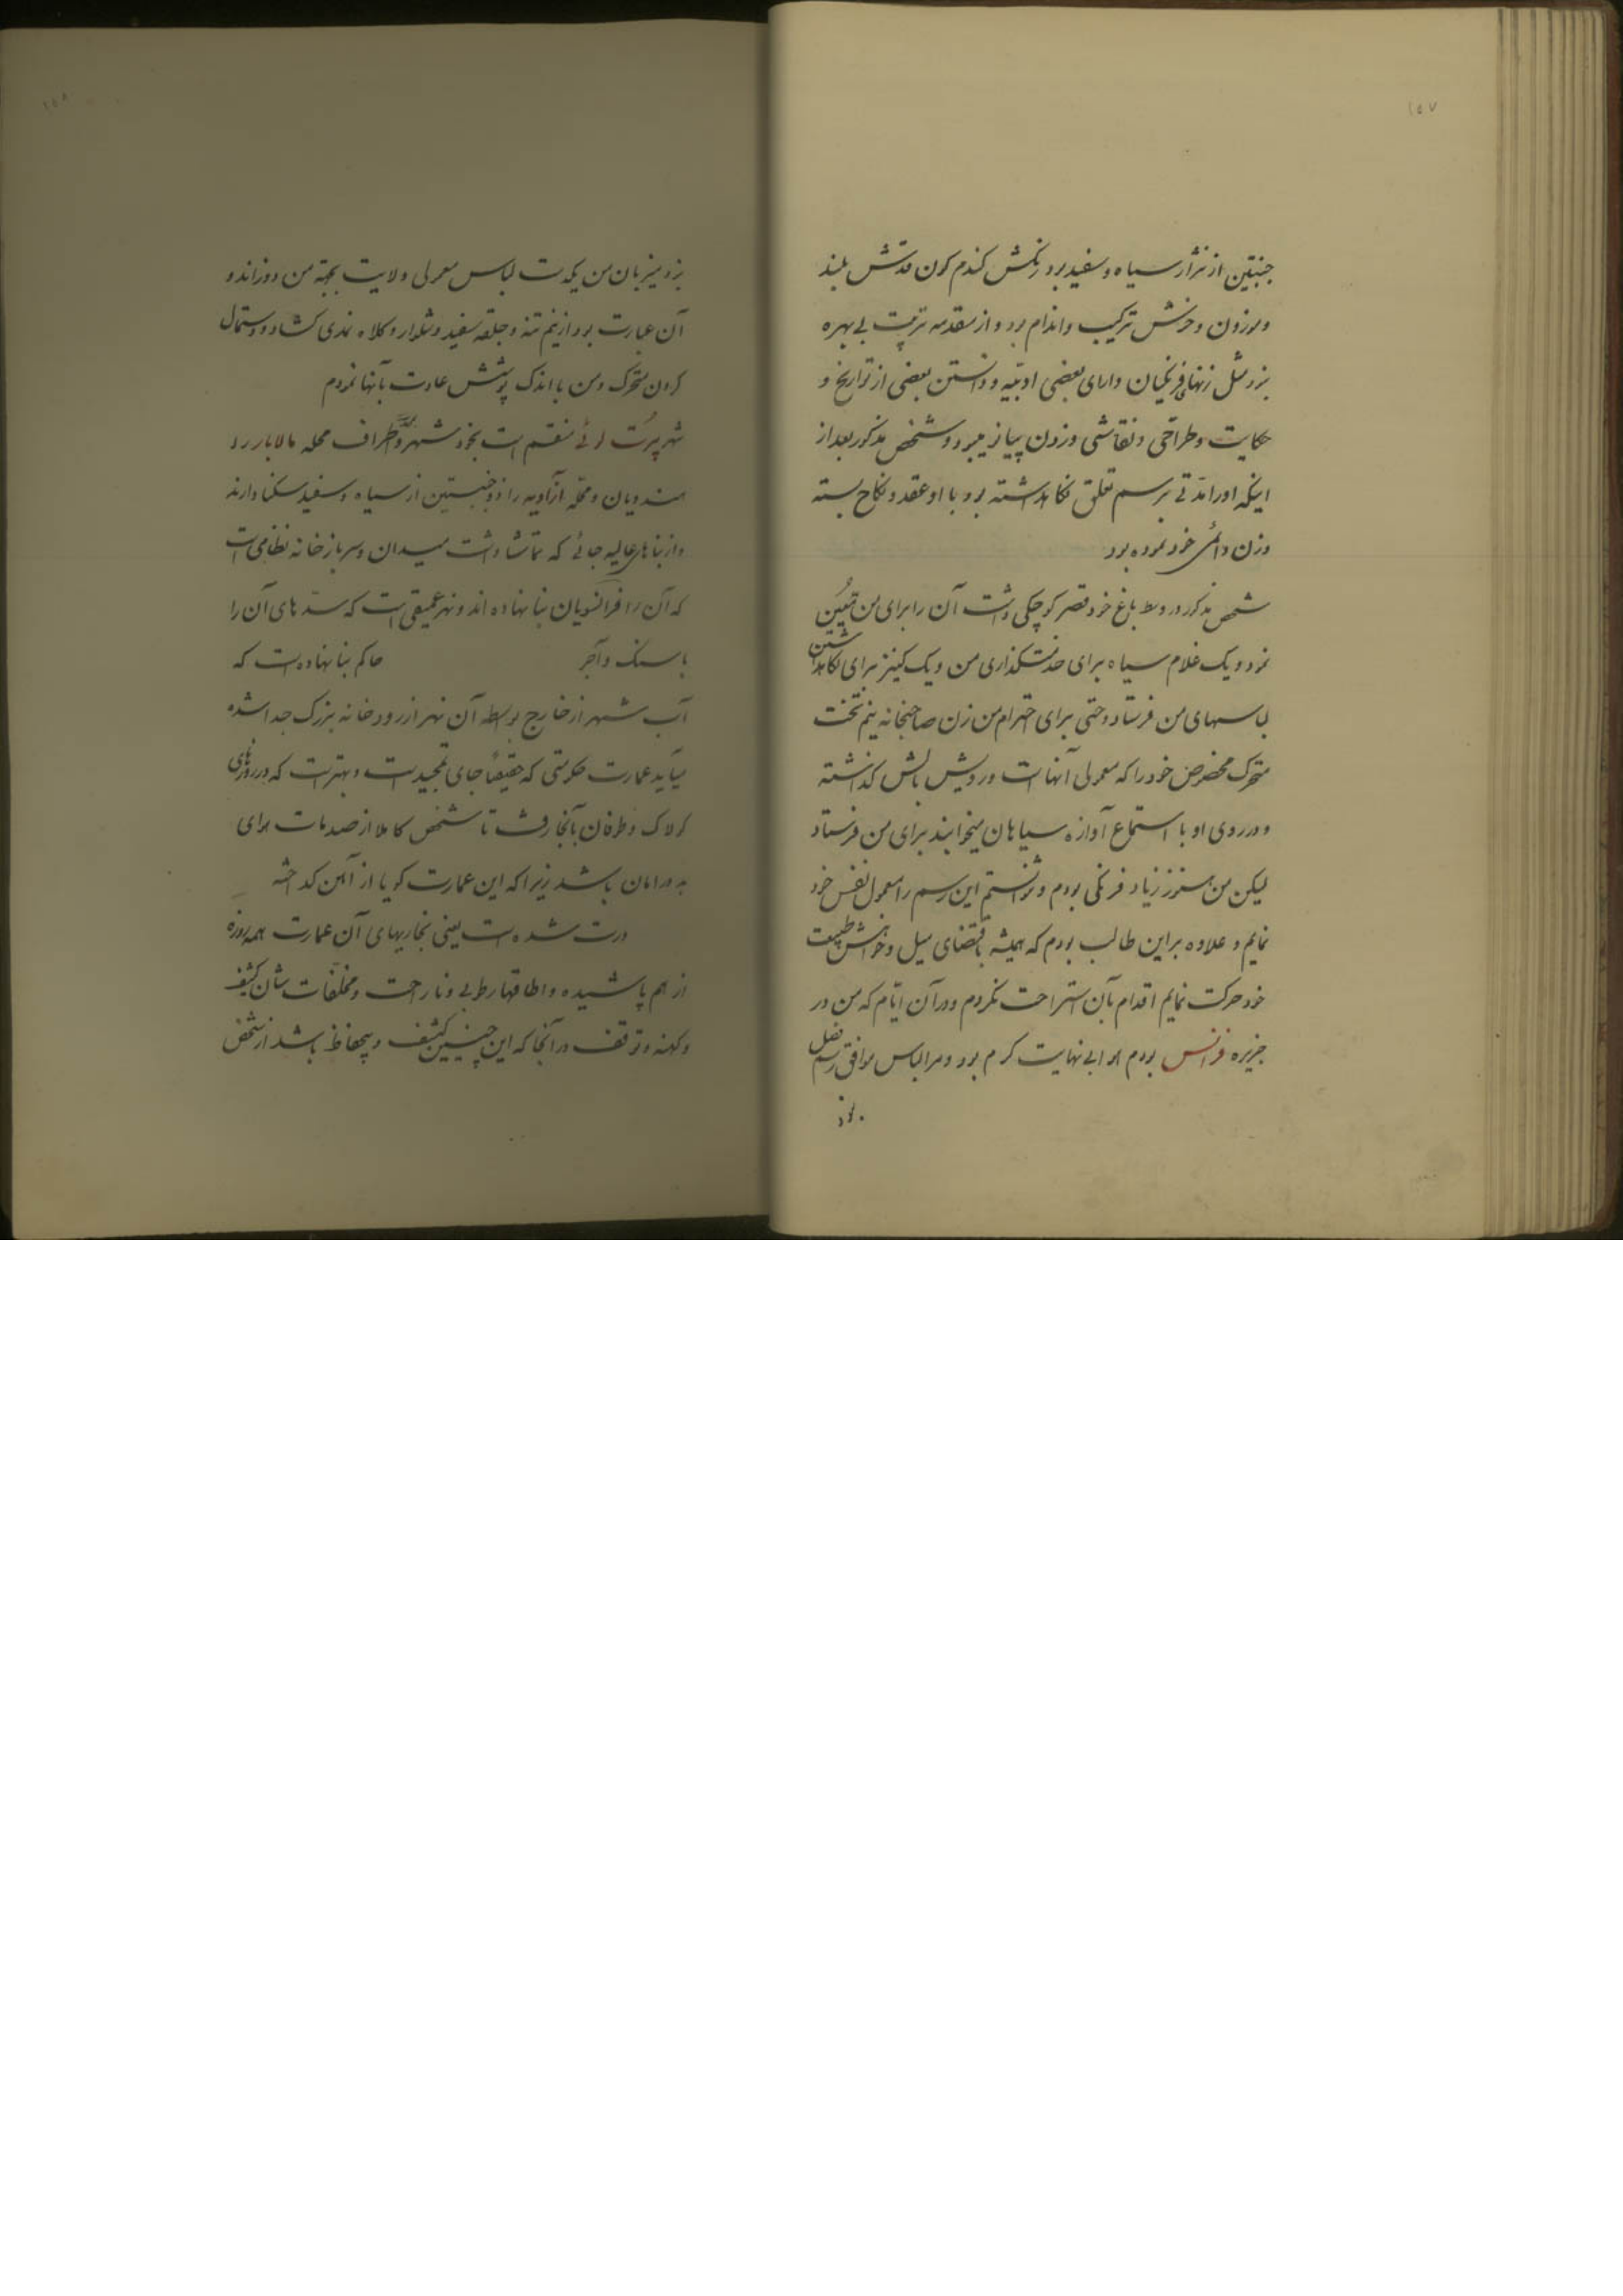 ۱۵۷
جنبتین از نژاد سیاه و سفید بود رنکش کندم کون قدش بلند
و موزون و خوش ترکیب و اندام بود و از مقدمه تربیت بی بهره
نبود مثل زنهای فرنکیان دارای بعضی ادبیه و دانستن بعضی از تواریخ و
حکایت و طراحی و نقاشی و زدن پیانو میبود و شخص مذکور بعد از
اینکه او را مدتی برسم تعلق نکاهداشته بود با او عقد و نکاح بسته
و زن دائمی خود نموده بود
شخص مذکور در وسط باغ خود قصر کوچکی داشت آن را برای من تعیین
نمود و یک غلام سیاه برای خدمتکذاری من و یک کنیز برای نکاهداشتن
لباسهای من فرستاد و حتی برای احترام من زن صاحبخانه نیم تخت
متحرک مخصوص خود را که معمولی آنهاست و رویش بالش کذاشته
و در روی او با استماع آوازه سیاهان میخوابند برای من فرستاد
لیکن من هنوز زیاد فرنکی بودم و نتوانستم این رسم را معمول نفس خود
نمایم و علاوه براین طالب بودم که همیشه باقتضای میل و خواهش طبیعت
خود حرکت نمایم اقدام بآن استراحت نکردم و در آن ایام که من در
جزیره فرانس بودم هوا بی نهایت کرم بود و مرا لباس موافق رسم فصل
نبود
۱۵۸
نزد میزبان من یکدست لباس معمولی ولایت بجهة من دوزاند و
آن عبارت بود از نیم تنه و جلتقه سفید و شلوار و کلاه نمدی کشاد و دستمال
کردن متحرک و من با اندک پوشش عادت بآنها نمودم
شهر پرت لوئی منقسم است بخود شهر و اطراف محله مالابار رد
هندویان و محله آزادیه را ذوجنبتین از سیاه و سفید سکنا دارند
و از بناهای عالیه جائی که تماشا داشت میدان و سرباز خانه نظامی است
که آن را فرانسویان بنا نهاده اند و نهر عمیقی است که سدهای آن را
با سنک و آجر حاکم بنا نهاده است که
آب شهر از خارج بواسطه آن نهر از رودخانه بزرک جدا شده
میآید عمارت حکومتی که حقیقتاً جای تمجید است و بهتر است که در روزهای
کولاک و طوفان بآنجا رفت تا شخص کاملا از صدمات هوای
بد در امان باشد زیرا که این عمارت کویا از آهن کداخته
درست شده است یعنی نجاریهای آن عمارت همه روزه
از هم پاشیده و اطاقها رطوبی و ناراحت و مخلفات شان کثیف
و کهنه و توقف در آنجا که این چنین کثیف و بیحفاظ باشد از شخص